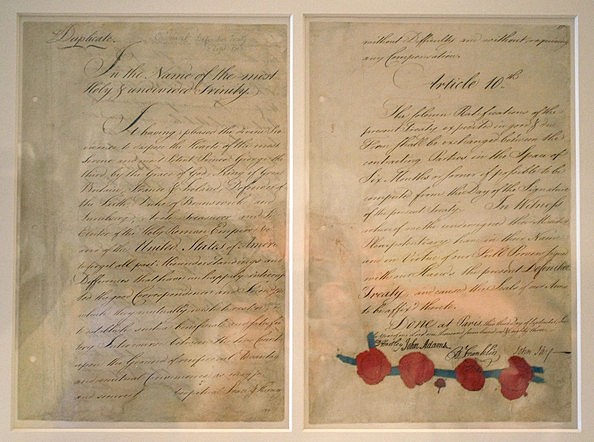 Duplicate.
In the Name of the most
Holy & undivided Trinity.
It having pleased the divine Pro
vidence to dispose the Hearts of the most
Serene and most Potent Prince George the
third, by the Grace of God, King of Great
Britain, France & Ireland, Defender of
the Faith, Duke of Brunswick and
Lunebourg, Arch Treasurer and
Elector of the Holy Roman Empire &c.
and of the United States of America
to forget all past Misunderstandings and
Differences that have unhappily interrup
ted the good Correspondence and
which they mutually wish to
to establish such a beneficial and satisfac
tory Intercourse between the two Countries
upon the Ground of reciprocal
and mutual Convenience as may
and secure
Perpetual Peace & Harmony
without Difficulty and without requiring
any Compensation.
Article 10th
The solemn Ratifications of the
present Treaty expedited in good & due
Form shall be exchanged between the
contracting Parties in the Space of
Six Months or sooner if possible to be
computed from the Day of the Signature
of the present Treaty. In Witness
whereof we the undersigned their Ministers
Plenipotentiary have in their Name
and in Virtue of our Full Powers signed
with our Hands the present Definitive
Treaty, and caused the Seals of our Arms
to be affix'd thereto.
Done at Paris, this third Day of September,
D Hartley John Adams B Franklin John Jay